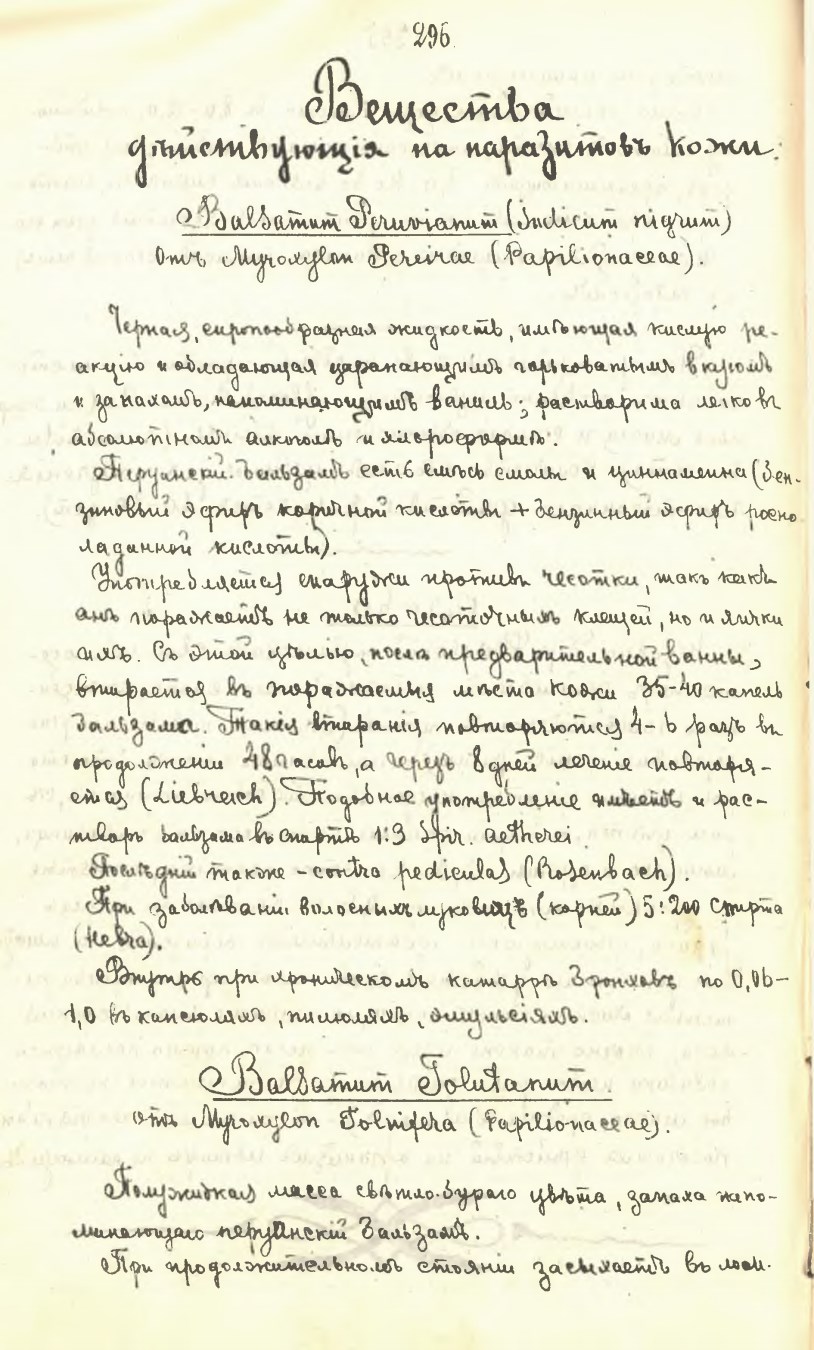 296
Вещества
дѣйствующія на паразитовъ кожи.
Balsamum Peruvianum (Indicum nigrum)
Отъ Myroxylon Pereirae (Papilionaceae).
Черная, сиропообразная жидкость, имѣющая кислую ре-
акцію и обладающая царапающимъ горьковатымъ вкусомъ
и запахомъ, напоминающимъ ваниль; растворима легко въ
абсолютномъ алкоголѣ и хлороформѣ.
Перуанскій бальзамъ есть смѣсь смолы и циннамеина (бен-
зиновый эфиръ коричной кислоты + бензинный эфиръ росно
ладанной кислоты).
Употребляется снаружи противъ чесотки, такъ какъ
онъ поражаетъ не только чесоточныхъ клещей, но и яички
ихъ. Съ этой цѣлью, послѣ предварительной ванны,
втирается въ поражаемыя мѣста кожи 35-40 капель
бальзама. Такія втиранія повторяются 4-6 разъ въ
продолженіи 48 часовъ, а черезъ 8 дней леченіе повторя-
ется (Liebreich). Подобное употребленіе имѣетъ и рас-
творъ бальзама въ спиртѣ 1:3 Spir. aetherei
Послѣдній также - contra pediculas (Rosenbach).
При заболѣваніи волосныхъ луковицъ (корней) 5:200 спирта
(Hebra).
Внутрь при хроническомъ катаррѣ бронховъ по 0,06-
1,0 въ капсюляхъ, пилюляхъ, эмульсіяхъ.
Balsamum Tolutanum.
отъ Myroxylon Tolnifera (Papilionaceae).
Полужидкая масса свѣтло-бураго цвѣта, запаха напо-
минающаго перуанскій бальзамъ.
При продолжительномъ стояніи засыхаетъ въ